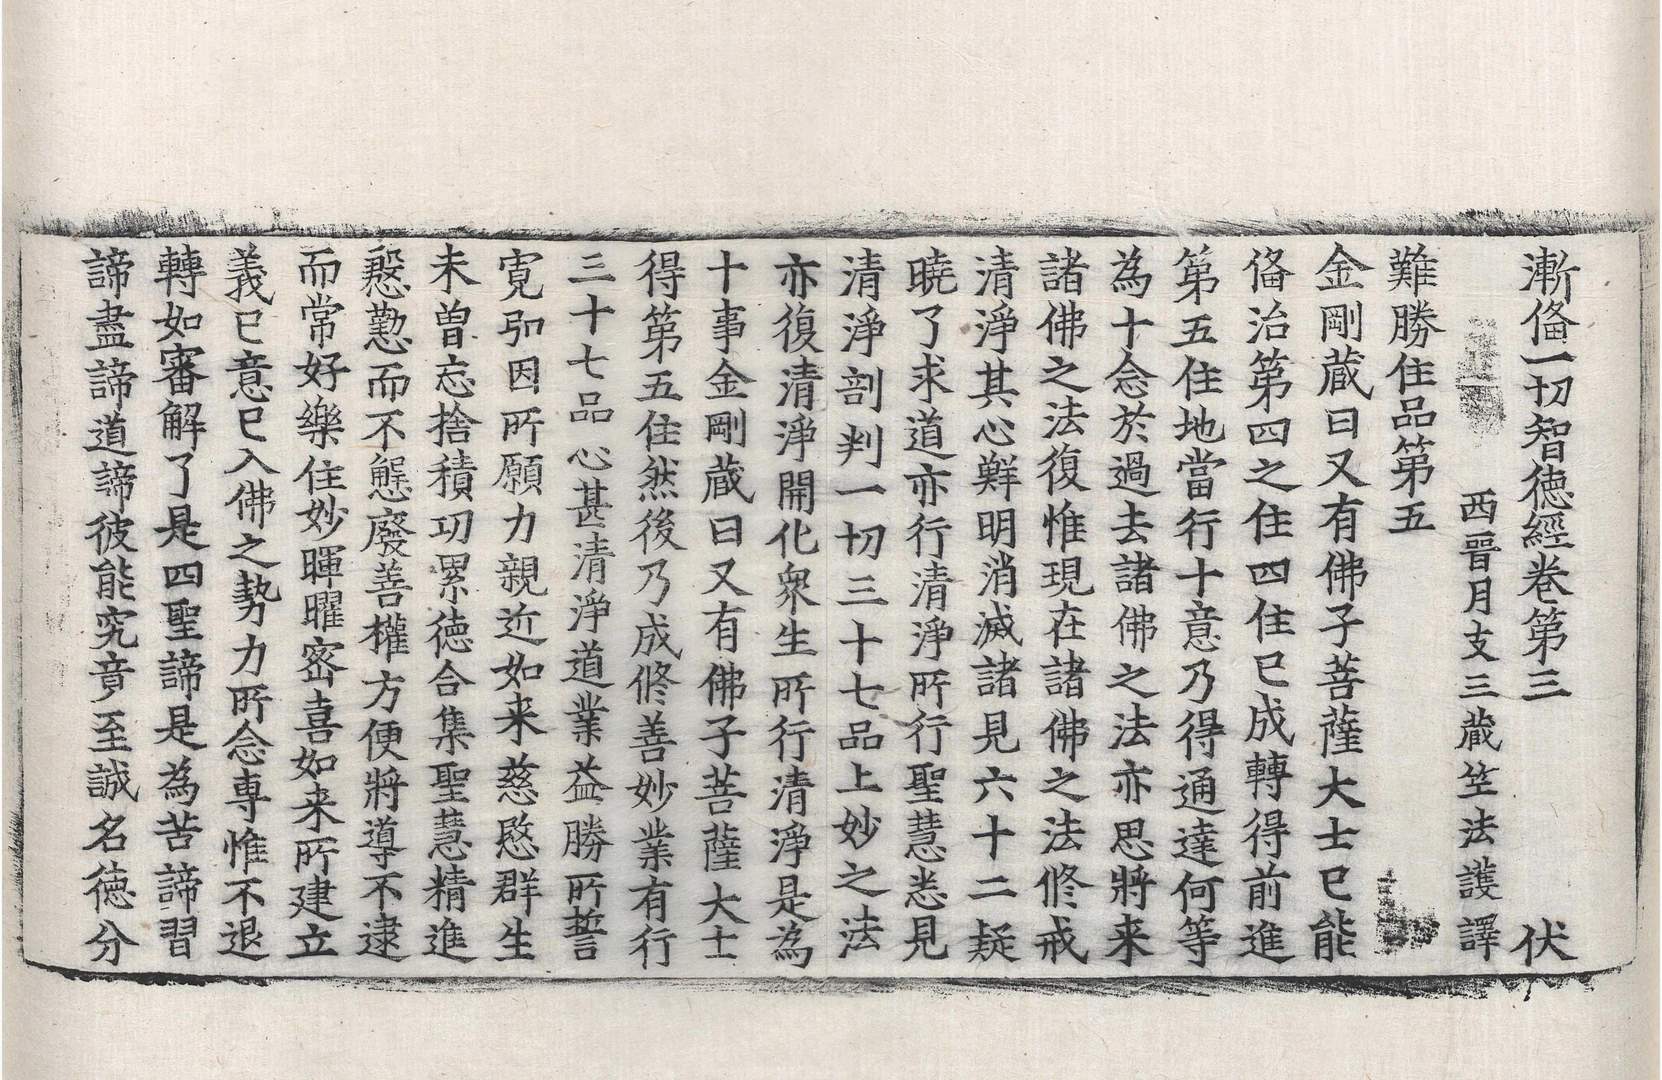 漸俻一切智徳經卷第三　伏
西晉月支三蔵竺法護譯
難勝住品第五
金剛蔵曰又有佛子菩薩大士已能
俻治第四之住四住已成轉得前進
第五住地當行十意乃得通達何等
為十念於過去諸佛之法亦思將来
諸佛之法復惟現在諸佛之法修戒
清淨其心鮮明消滅諸見六十二疑
曉了求道亦行清淨所行聖慧悉見
清淨剖判一切三十七品上妙之法
亦復清淨開化衆生所行清淨是為
十事金剛蔵曰又有佛子菩薩大士
得第五住然後乃成修善妙業有行
三十七品心甚清淨道業益勝所誓
寛弘因所願力親近如来慈愍群生
未曽忘捨積功累徳合集聖慧精進
慇懃而不懈廢善權方便將導不逮
而常好樂住妙暉曜密喜如来所建立
義已意已入佛之勢力所念専惟不退
轉如審解了是四聖諦是為苦諦習
諦盡諦道諦彼能究竟至誠名徳分